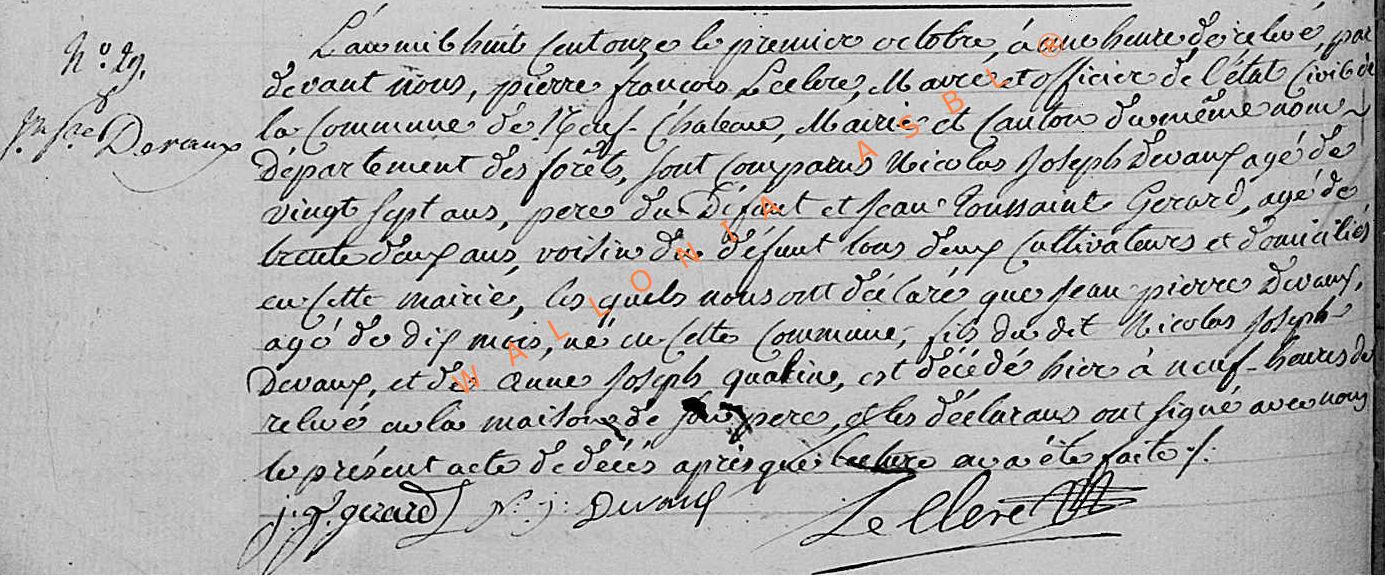 N.° 29.
Jn Pre Devaux
L'an mil huit cent onze le premier octobre, à une heure de relevé, par
devant nous, pierre françois Leclerc, Maire et officier de l'état Civil de
la Commune de Neuf-Chateau, Mairie et Canton du même nom
Département des forêts, sont comparus Nicolas Joseph Devaux agé de
vingt sept ans, pere du Défunt et Jean Toussaint Gerard, agé de
trente deux ans, voisin du défunt tous deux Cultivateurs et domiciliés
en cette mairie, les quels nous ont déclaré que Jean pierre Devaux,
agé de dix mois, né en cette commune, fils du dit Nicolas Joseph
Devaux, et de anne Joseph qualin, est décédé hier à neuf-heures de
relevé en la maison de son pere, et les déclarans ont signé avec nous
le présent acte de décés après que lecture en a été faite ./.
j. T. gerard N. j. Devaux Le Clerc
WALLONIA ASBL ®